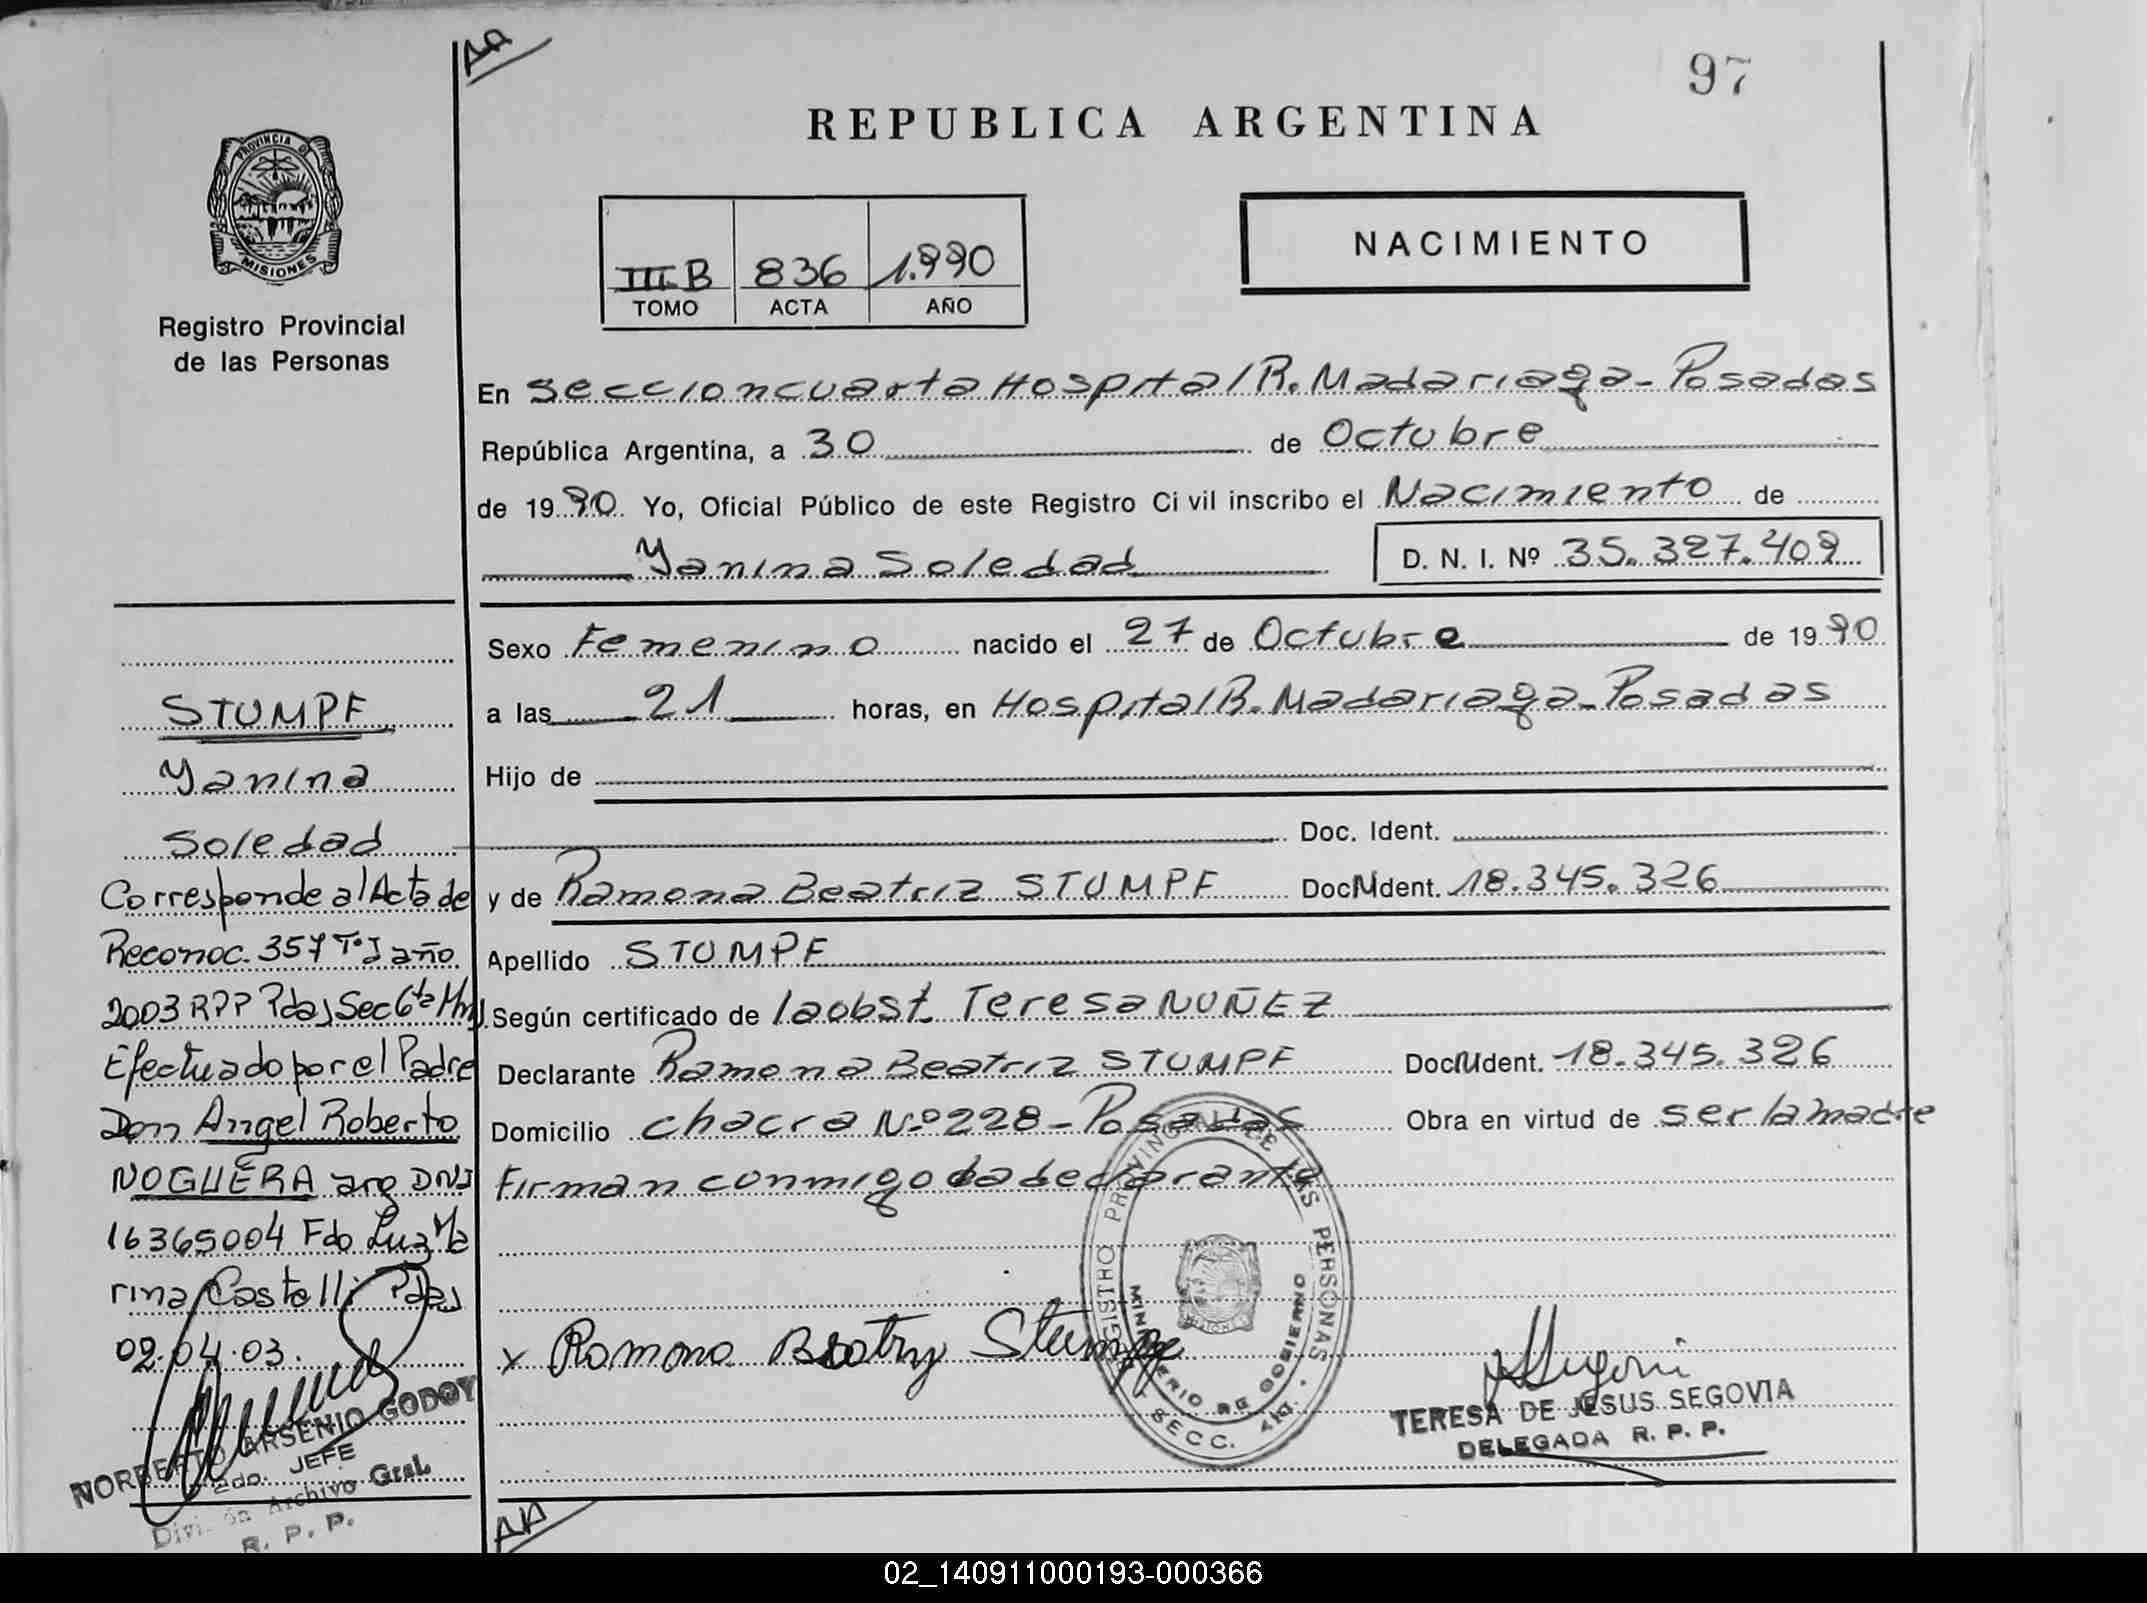 AA
97
REPUBLICA ARGENTINA
PROVINCIA D
MISIONES
Registro Provincial
de las Personas
III.B 836 1.990
TOMO ACTA AÑO
NACIMIENTO
En Seccion cuarta Hospital R. Madariaga - Posadas
República Argentina, a 30 de Octubre
de 1990 Yo, Oficial Público de este Registro Civil inscribo el Nacimiento de
Yanina Soledad
D. N. I. Nº 35.327.409
Sexo Femenino nacido el 27 de Octubre de 1990
a las 21 horas, en Hospital R. Madariaga - Posadas
Hijo de
Doc. Ident.
y de Ramona Beatriz STUMPF Doc. Ident. 18.345.326
Apellido STUMPF
Según certificado de la obst. Teresa NUÑEZ
Declarante Ramona Beatriz STUMPF Doc. Ident. 18.345.326
Domicilio chacra Nº 228 - Posadas Obra en virtud de ser la madre
Firman conmigo la declarante
x Ramona Beatriz Stumpf
REGISTRO PROVINCIAL DE LAS PERSONAS
MINISTERIO DE GOBIERNO
SECC.
TERESA DE JESUS SEGOVIA
DELEGADA R. P. P.
STUMPF
Yanina
Soledad
Corresponde al Acta de
Reconoc. 357 Tº I año
2003 RPP Pdas Sec 6ta
Efectuado por el Padre
Don Angel Roberto
NOGUERA arg DNI
16365004 Fdo Luz Ma
rina Castelli Pdas
02.04.03.
NORBERTO ARSENIO GODOY
JEFE
División Archivo Gral.
R. P. P.
AA
02_140911000193-000366